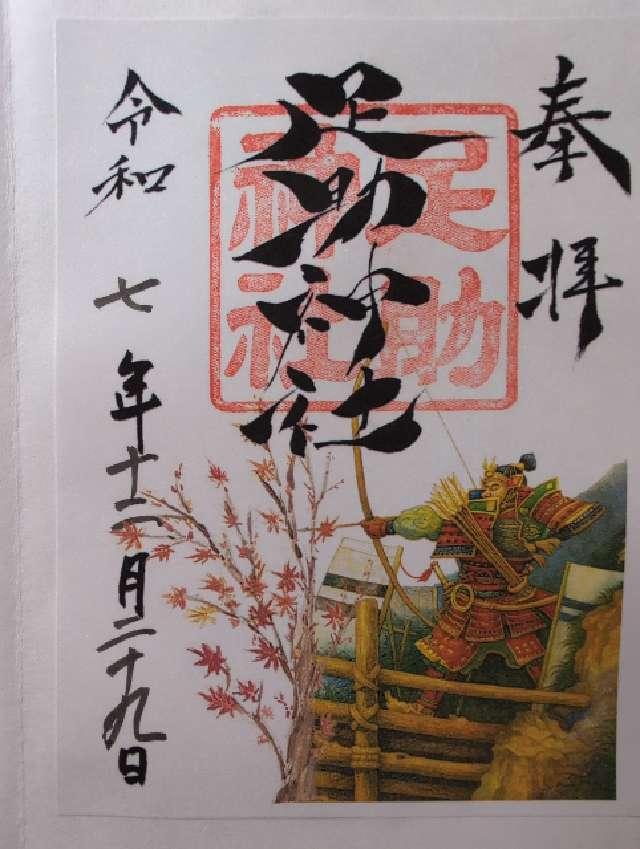 奉拝
足助
神社
足助神社
令和七年十二月二十九日